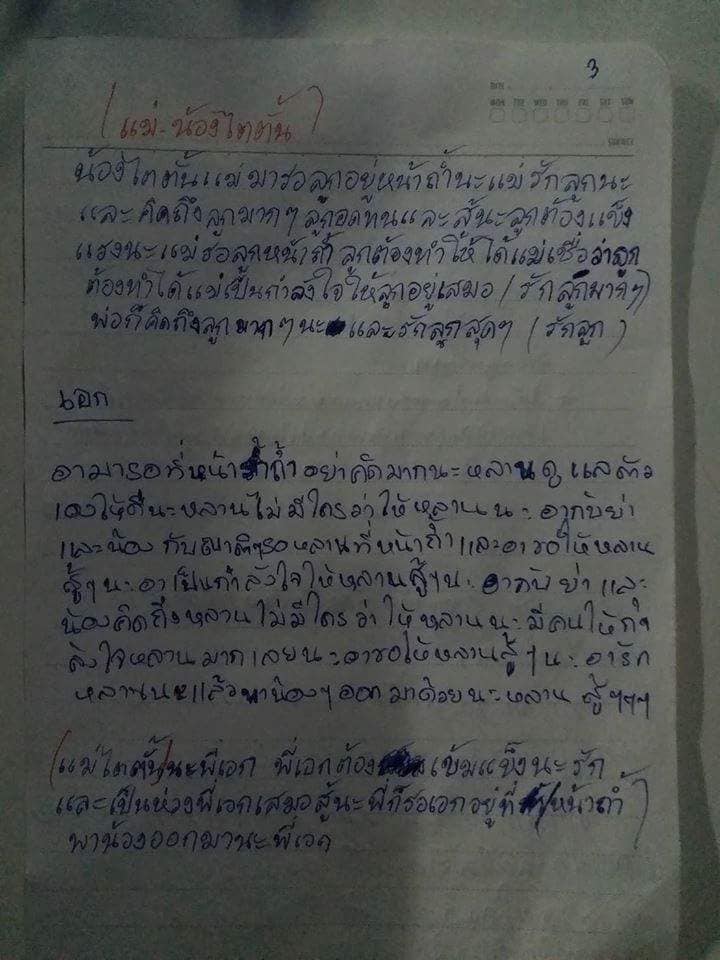 3
(แม่-น้องไตตั้น)
น้องไตตั้นแม่มารอลูกอยู่หน้าถ้ำนะแม่รักลูกนะ
และคิดถึงลูกมากๆลูกอดทนและสู้นะลูกต้องแข็ง
แรงนะแม่รอลูกหน้าถ้ำลูกต้องทำให้ได้แม่เชื่อว่าลูก
ต้องทำได้แม่เป็นกำลังใจให้ลูกอยู่เสมอ (รักลูกมากๆ)
พ่อก็คิดถึงลูกมากๆนะ และรักลูกสุดๆ (รักลูก)
เอก
อามารอที่หน้าถ้ำอย่าคิดมากนะหลานดูแลตัว
เองให้ดีนะหลานไม่มีใครว่าให้หลานนะ อากับย่า
และน้อง กับญาติๆรอหลานที่หน้าถ้ำและอาขอให้หลาน
สู้ๆนะ อาเป็นกำลังใจให้หลานสู้ๆนะ อากับย่า และ
น้องคิดถึงหลานไม่มีใครว่าให้หลานนะ มีคนให้กำ
ลังใจหลานมากเลยนะอาขอให้หลานสู้ๆนะ อารัก
หลานนะแล้วพาน้องๆออกมาด้วยนะหลาน สู้ๆๆๆ
(แม่ไตตั้น)นะพี่เอก พี่เอกต้อง เข้มแข็งนะรัก
และเป็นห่วงพี่เอกเสมอสู้นะพี่ก็รอเอกอยู่ที่ หน้าถ้ำ)
พาน้องออกมานะพี่เอก